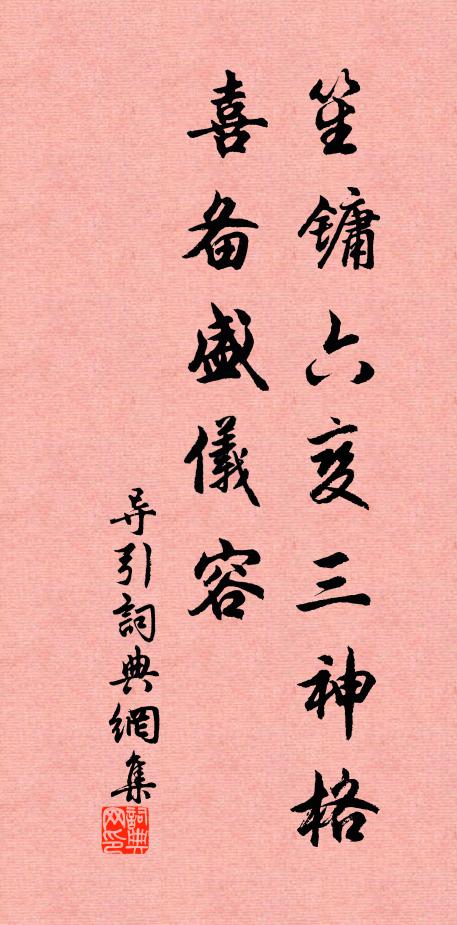 笙镛六变三神格
喜备盛儀容
导引詞典網集
詞典网印